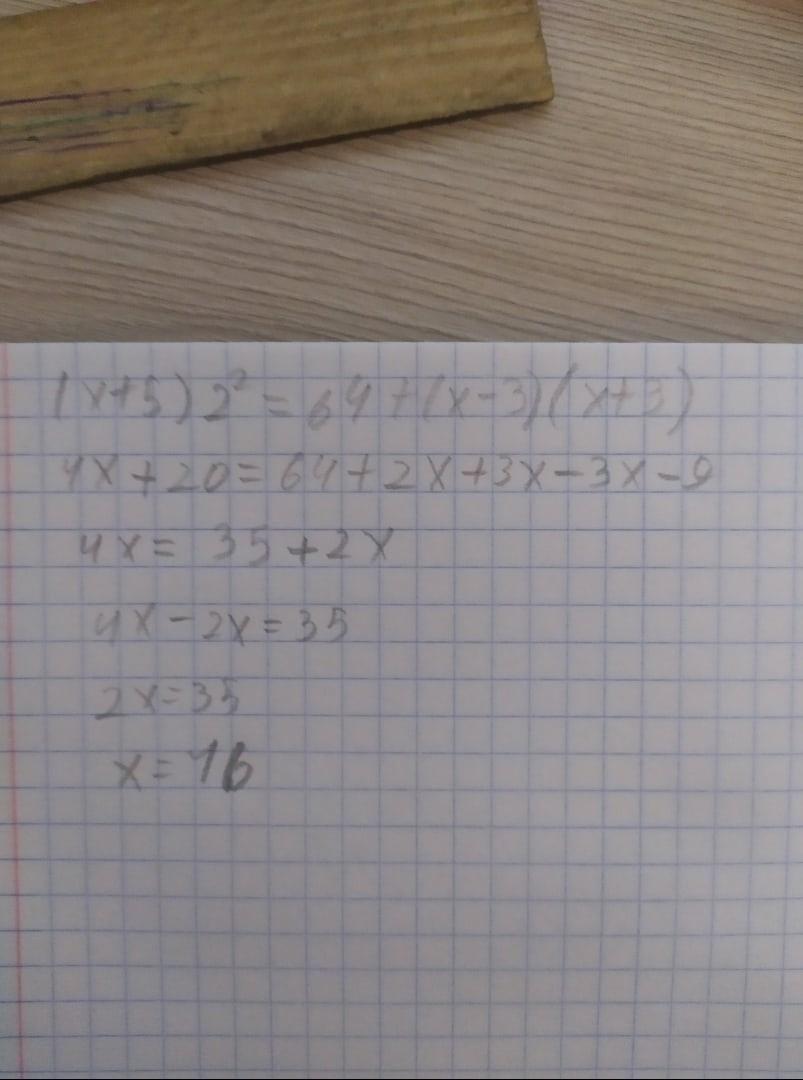 (x+5)2² = 64+(x-3)(x+3)
4x+20=64+2x+3x-3x-9
4x= 35+2x
4x-2x=35
2x=35
x=16